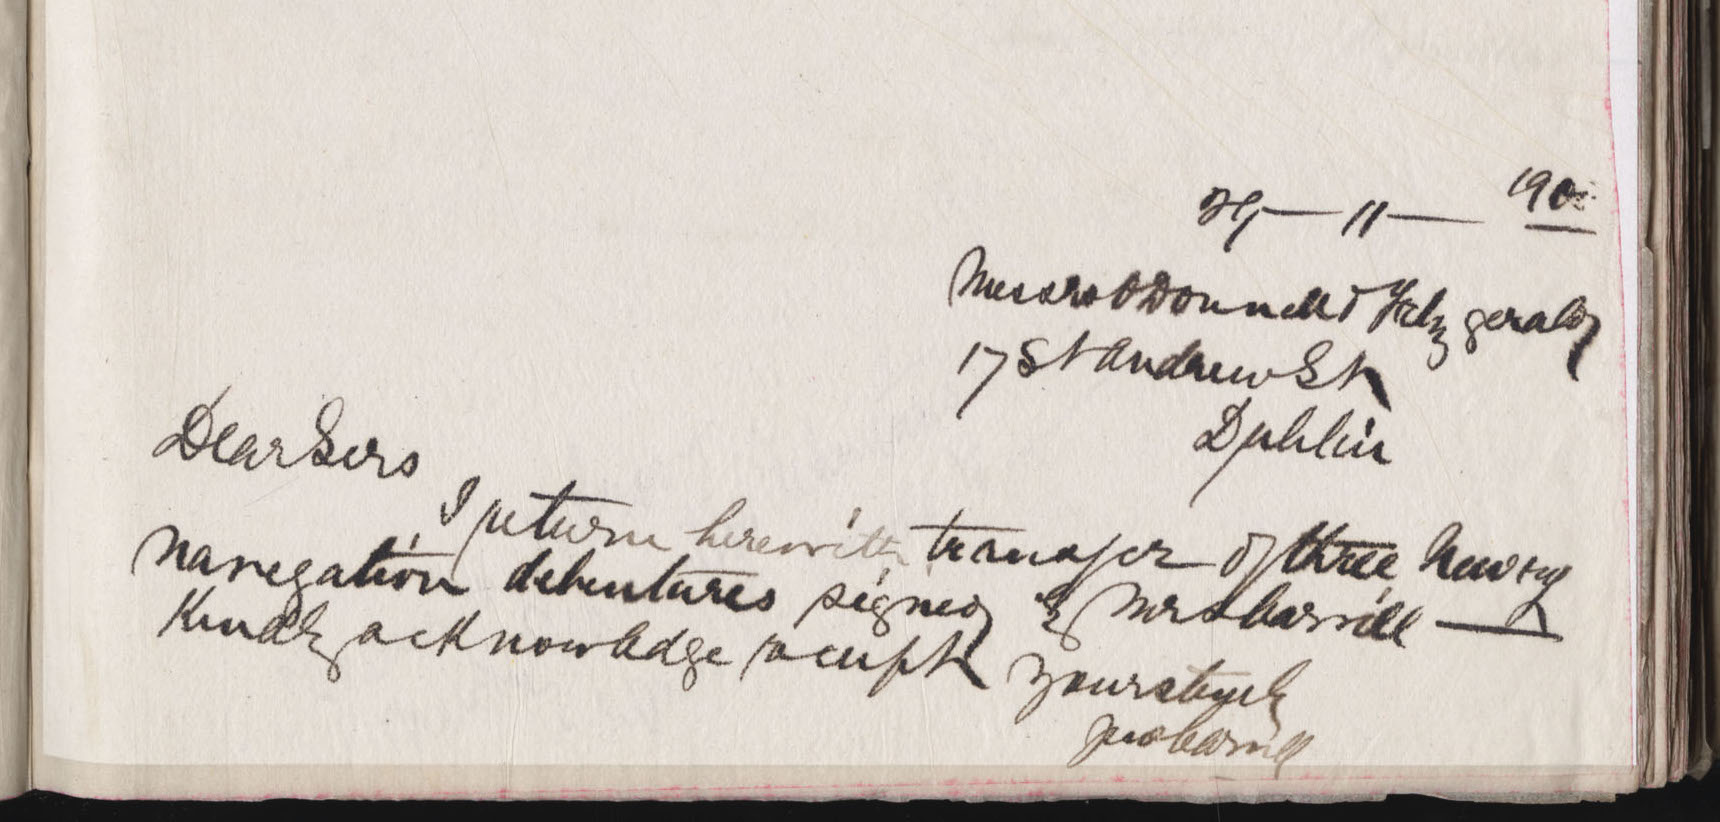 29 — 11 — 190
Messrs O'Donnell & Fitzgerald
17 St Andrew St
Dublin
Dear Sirs
I return herewith transfer of three Newry
Navigation debentures signed by Mrs Carvill —
Kindly acknowledge receipt Yours truly
Carvill